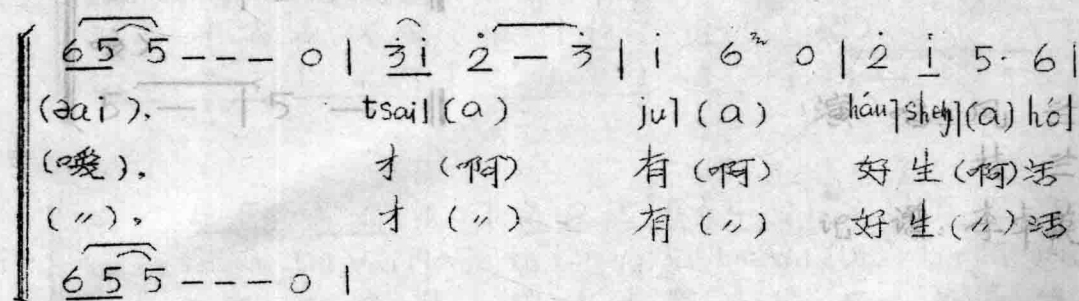 6 5 5 - - - 0 | 3 i 2 - 3 | i 6 0 | 2 i 5· 6 |
(əai), tsai˥ (a) ju˥ (a) háu˥ sheŋ˥ (a) hó˥
(嗳), 才 (啊) 有 (啊) 好生 (啊) 活
(〃), 才 (〃) 有 (〃) 好生 (〃) 活
6 5 5 - - - 0 |